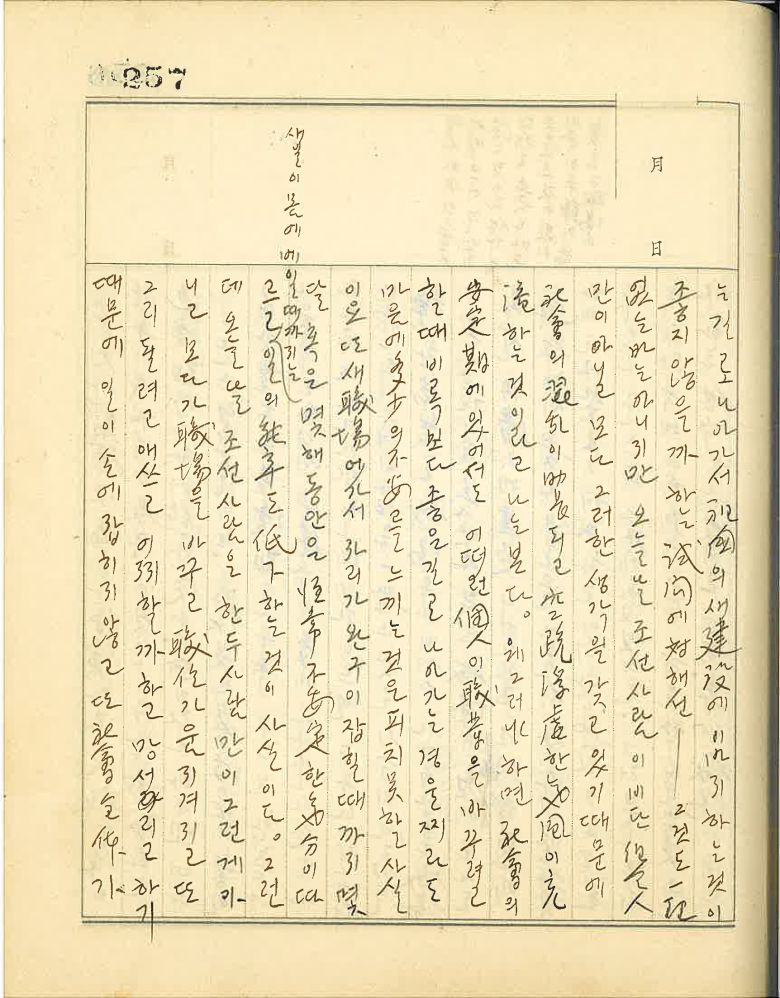 257
月 日
는 길로 나아가서 祖國의 새 建設에 이바지하는 것이
좋지 않을까 하는 試問에 対해선 ─ 그것도 一理
없는 바는 아니지만 오늘날 조선사람이 비단 個人
만이 아닐 모다 그러한 생각을 갖고 있기 때문에
社會의 混乱이 助長되고 空疎 浮虛한 氣風이 充
滿하는 것이라고 나는 본다。 웨그러냐 하면 社會의
安定期에 있어서도 어떠헌 個人이 職業을 바꾸려
할 때 비록 보다 좋은 길로 나아가는 경울찌라도
마음에 多少의 不安을 느끼는 것은 피치 못할 사실
이요 또 새 職場에 가서 자리가 완구이 잡힐 때까지 몇
달 혹은 몇 해 동안은 恒常 不安定한 氣分이 따
르고
새 일이 몸에 베일 때까지는
일의 能率도 低下하는 것이 사실이다。 그런
데 오늘날 조선사람은 한두 사람만이 그런게 아
니고 모다가 職場을 바꾸고 職作가를 지겨리고 또
그리 될려고 애쓰고 어찌할까 하고 망서리고 하기
때문에 일이 손에 잡히지 않고 또 社會 全体가